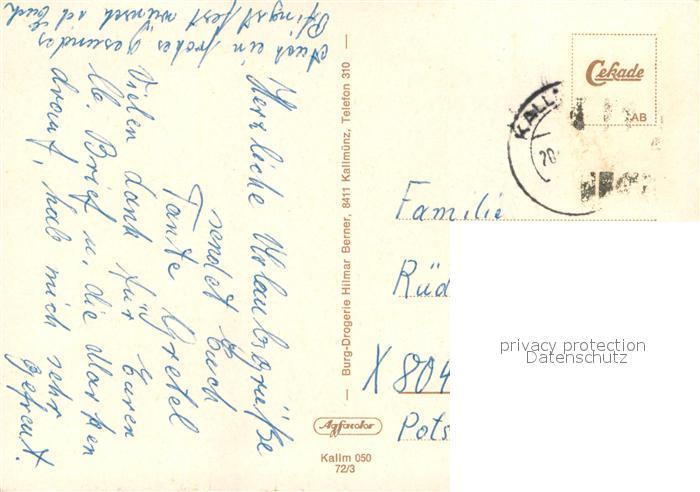 Herzliche Urlaubsgrüße
sendet Euch
Tante Gretel
Vielen dank für Euren
lb. Brief u. die Marken
drauf, hab mich sehr
gefreut.
Auch ein frohes gesundes
Pfingstfest wünsch ich Euch
Burg-Drogerie Hilmar Berner, 8411 Kallmünz, Telefon 310
Agfacolor
Kallm 050
72/3
Cekade
AB
KALLM
20
Familie
Rüd
X 804
Pots
privacy protection
Datenschutz